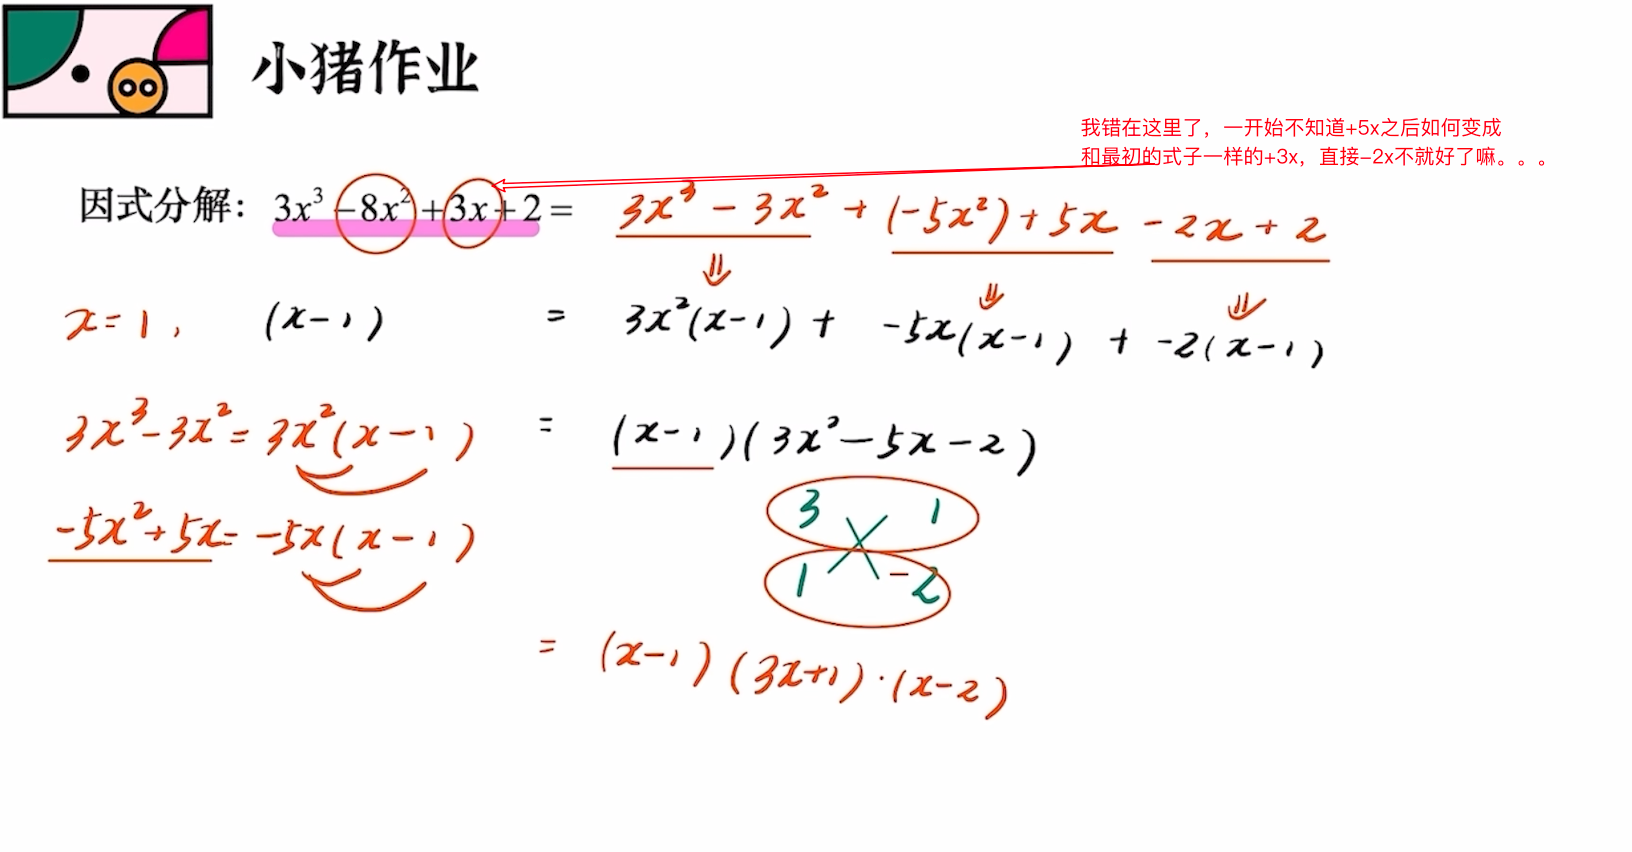 小猪作业
我错在这里了，一开始不知道+5x之后如何变成
和最初的式子一样的+3x，直接-2x不就好了嘛。。。
因式分解：3x³ -8x² +3x+2= 3x³ - 3x² + (-5x²) + 5x - 2x + 2
x=1, (x-1) = 3x²(x-1) + -5x(x-1) + -2(x-1)
3x³-3x²= 3x²(x-1) = (x-1)(3x²-5x-2)
3 1
-5x²+5x= -5x(x-1)
1 -2
= (x-1)(3x+1)·(x-2)